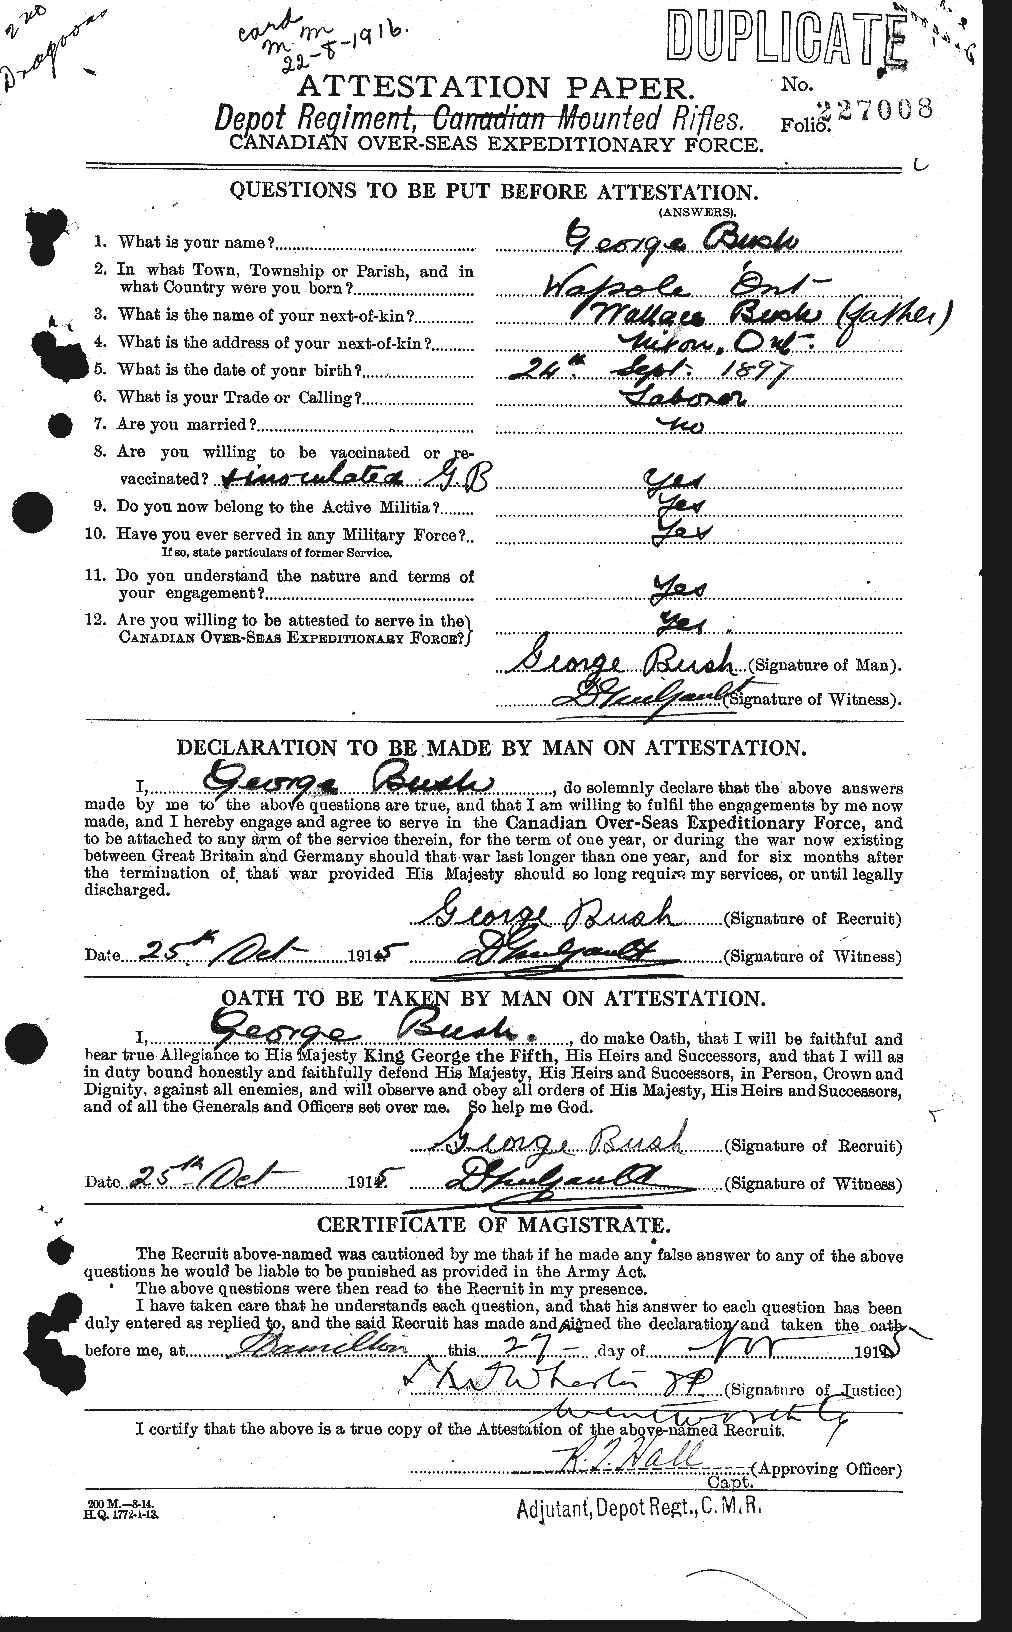 2nd
Dragoons
card
m m
22-8-1916.
DUPLICATE
ATTESTATION PAPER.
No.
Depot Regiment, Canadian Mounted Rifles.
Folio.
227008
CANADIAN OVER-SEAS EXPEDITIONARY FORCE.
QUESTIONS TO BE PUT BEFORE ATTESTATION.
(ANSWERS).
1. What is your name? George Bush
2. In what Town, Township or Parish, and in
what Country were you born? Wapole Ont
3. What is the name of your next-of-kin? Wallace Bush (father)
4. What is the address of your next-of-kin? Nixon, Ont.
5. What is the date of your birth? 24th Sept. 1897
6. What is your Trade or Calling? Laborer
7. Are you married? No
8. Are you willing to be vaccinated or re-
vaccinated? + inoculated G.B Yes
9. Do you now belong to the Active Militia? Yes
10. Have you ever served in any Military Force? Yes
If so, state particulars of former Service.
11. Do you understand the nature and terms of
your engagement? Yes
12. Are you willing to be attested to serve in the
CANADIAN OVER-SEAS EXPEDITIONARY FORCE? Yes.
George Bush (Signature of Man).
(Signature of Witness).
DECLARATION TO BE MADE BY MAN ON ATTESTATION.
I, George Bush, do solemnly declare that the above answers
made by me to the above questions are true, and that I am willing to fulfil the engagements by me now
made, and I hereby engage and agree to serve in the Canadian Over-Seas Expeditionary Force, and
to be attached to any arm of the service therein, for the term of one year, or during the war now existing
between Great Britain and Germany should that war last longer than one year, and for six months after
the termination of that war provided His Majesty should so long require my services, or until legally
discharged.
George Bush (Signature of Recruit)
Date 25th Oct 1915 (Signature of Witness)
OATH TO BE TAKEN BY MAN ON ATTESTATION.
I, George Bush., do make Oath, that I will be faithful and
bear true Allegiance to His Majesty King George the Fifth, His Heirs and Successors, and that I will as
in duty bound honestly and faithfully defend His Majesty, His Heirs and Successors, in Person, Crown and
Dignity, against all enemies, and will observe and obey all orders of His Majesty, His Heirs and Successors,
and of all the Generals and Officers set over me. So help me God.
George Bush (Signature of Recruit)
Date 25th Oct 1915 (Signature of Witness)
CERTIFICATE OF MAGISTRATE.
The Recruit above-named was cautioned by me that if he made any false answer to any of the above
questions he would be liable to be punished as provided in the Army Act.
The above questions were then read to the Recruit in my presence.
I have taken care that he understands each question, and that his answer to each question has been
duly entered as replied to, and the said Recruit has made and signed the declaration and taken the oath
before me, at Hamilton this 27 day of Nov 1915
JP (Signature of Justice)
Wentworth Co
I certify that the above is a true copy of the Attestation of the above-named Recruit.
Hall (Approving Officer)
Capt.
200 M.—8-14.
H.Q. 1772-1-13.
Adjutant, Depot Regt., C.M.R.